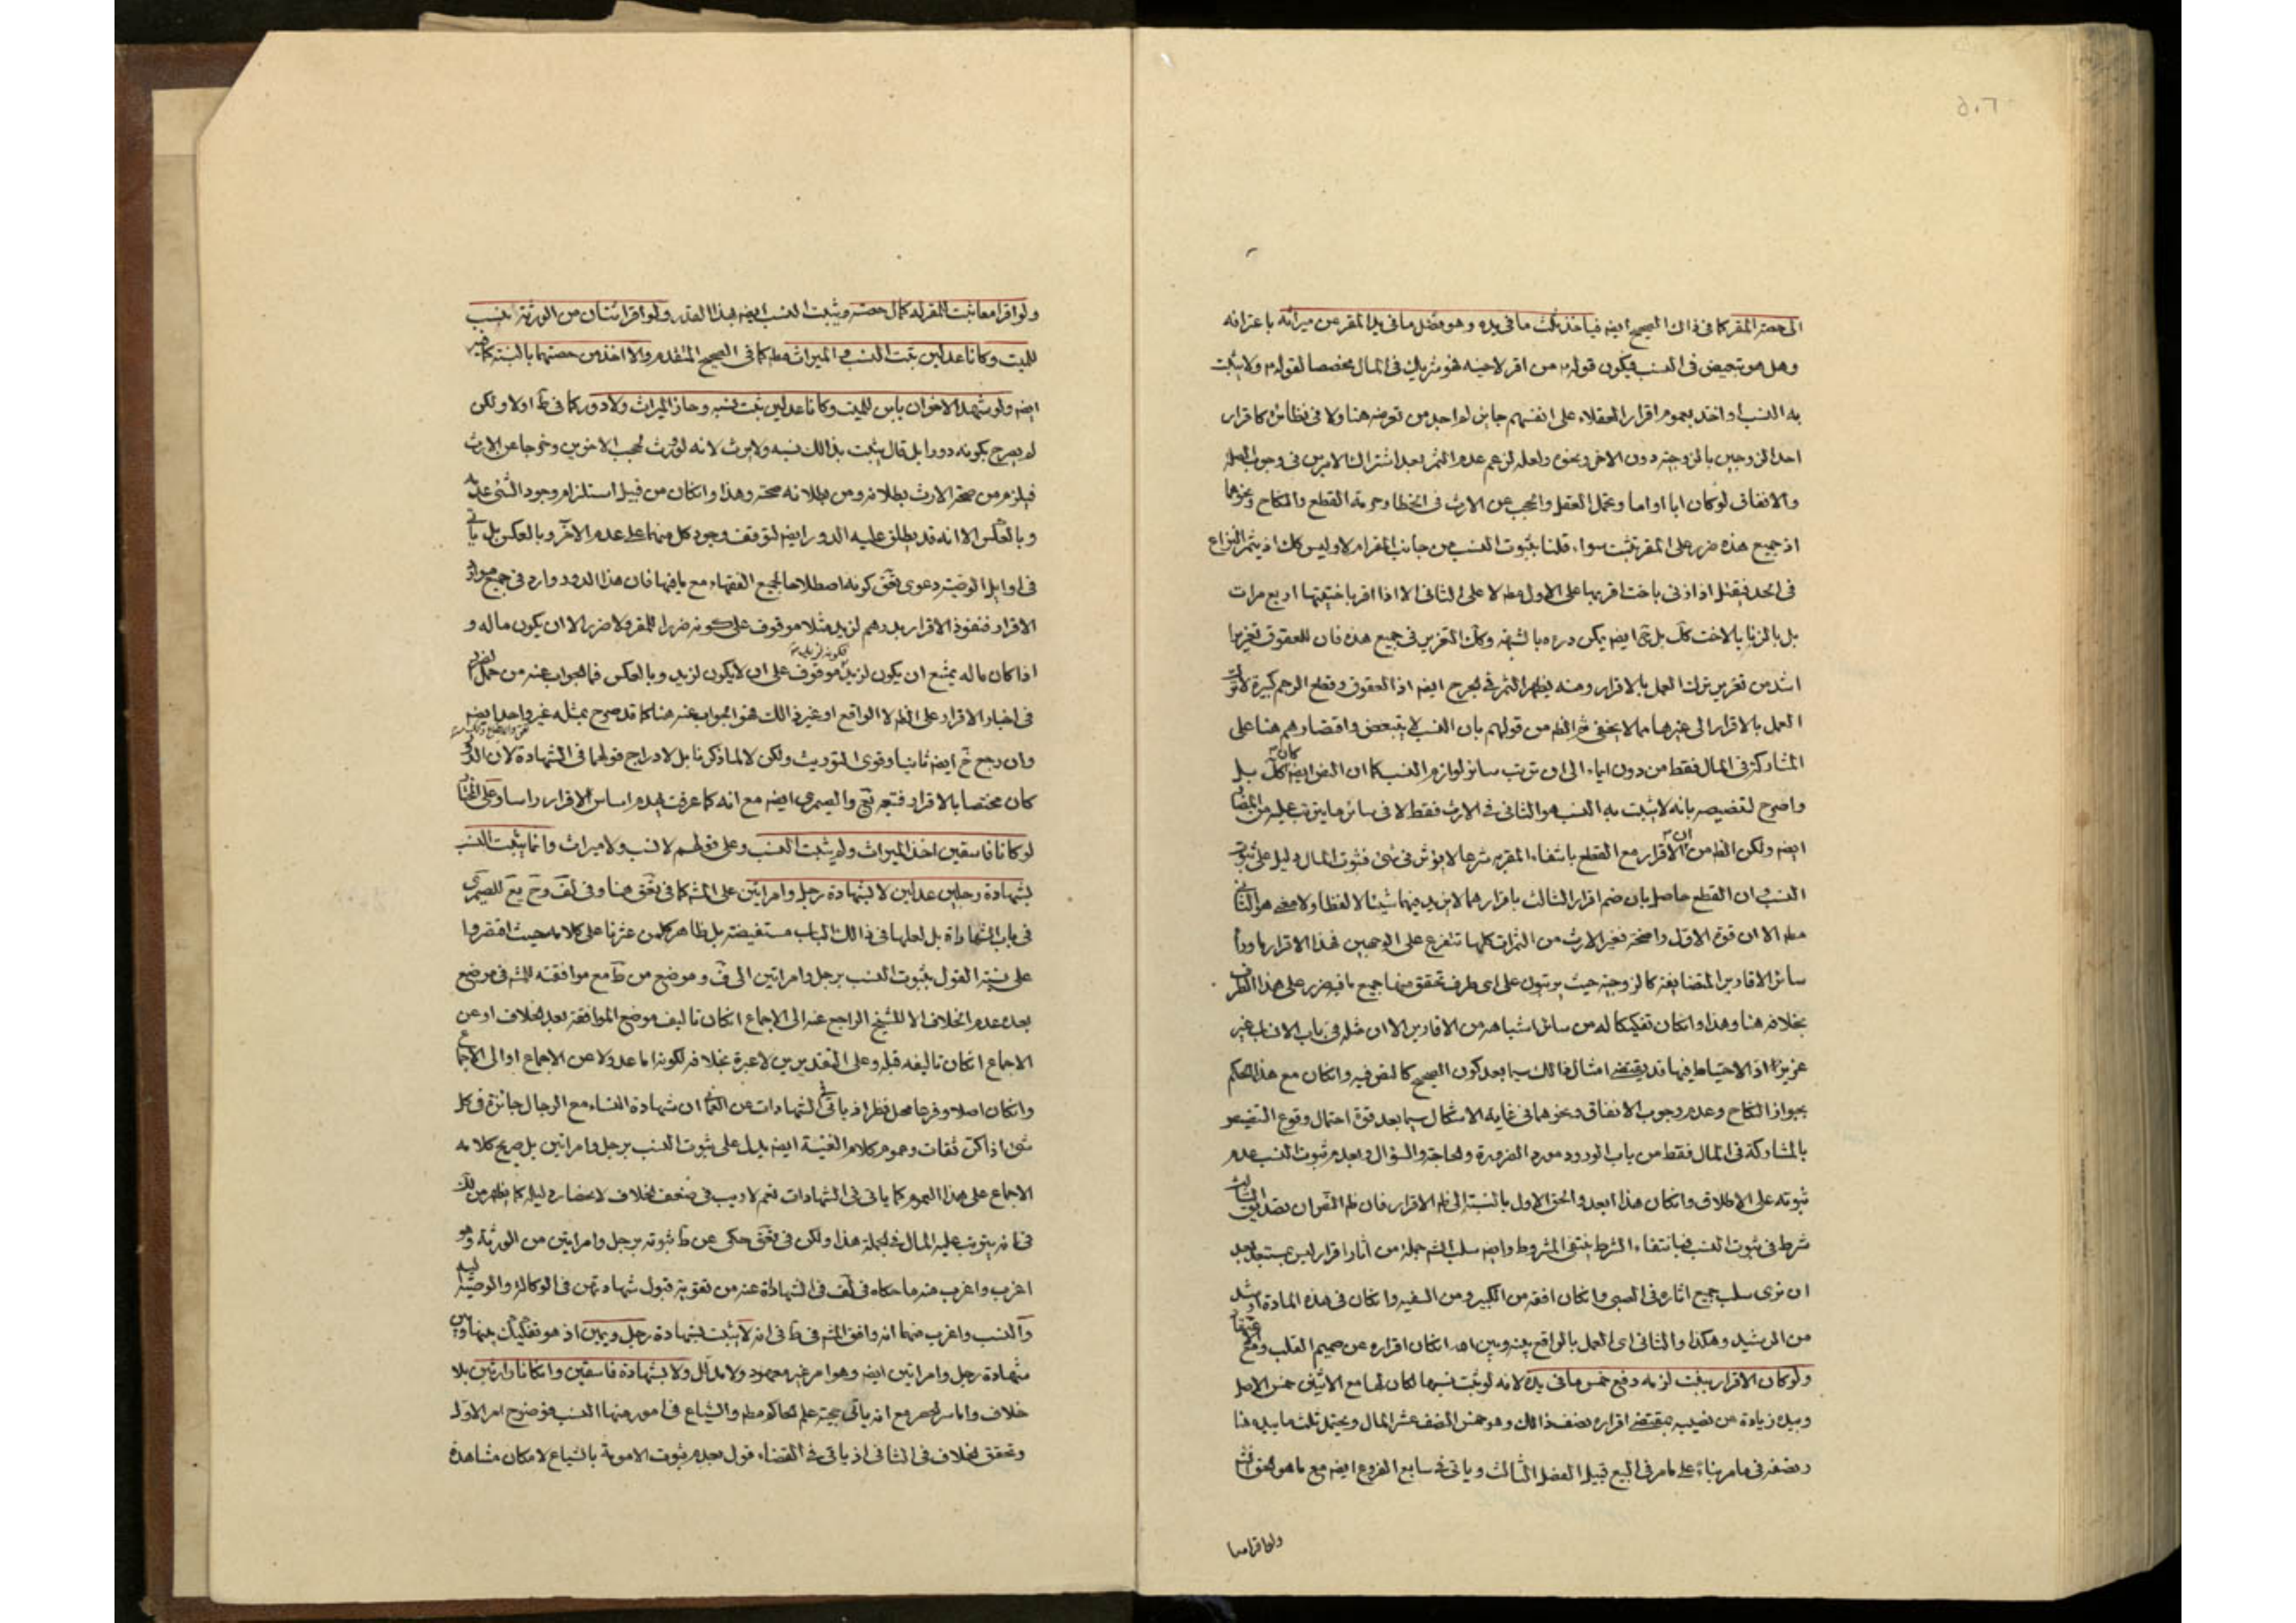 الى حصة المقر كما في ذاك الصحيح ايضه فياخذ ثلث ما في يده وهو فضل ما في يد المقر عن ميراثه باعترافه
وهل هو تبعيض في النسب فيكون قوله من اقر لاخيه فهو شريك في المال مخصصا لقوله ولا يثبت
به النسب او اخذ بعموم اقرار العقلاء على انفسهم جايز لم اجد من تعرضه هنا ولا في نظائره كاقرار
احد الزوجين بالزوجية دون الاخر ونحوه ولعله لزعم عدم الثمر بعد اشتراك الامرين في وجوب الصلة
والانفاق لو كان ابا او اما وتحمل العقل والحجب عن الارث في الخطا وحرمة القطع والنكاح ونحوها
اذ جميع هذه ضرر على المقر تثبت سواء قلنا بثبوت النسب من جانب المقر ام لا وليس كك اذ يثمر النزاع
في الحد فيقتل اذا زنى باخت اقر بها على الاول مطه لا على الثاني الا اذا اقر باختيتها اربع مرات
بل بالزنا بالاخت كك بل حتى ايضه يمكن درءه بالشبهة وكك التعزير في جميع هذه فان للعقوق تعزيرا
اشد من تعزير ترك العمل بالاقرار ومنه يظهر الثمر في الجرح ايضه اذ العقوق وقطع الرحم كبيرة لا ترك
العمل بالاقرار الى غيرها مما لا يخفى ثم الظه من قولهم بان النسب لا يتبعض واقتصارهم هنا على
المشاركة في المال فقط من دون ايماء الى ان ترتب سائر لوازم النسب كما ان النص ايضه كان كك بل
واصرح لتضيصه بانه لا يثبت به النسب هو الثاني في الارث فقط لا في سائر ما يترتب عليه من المضار
ايضه ولكن الظه من ان الاقرار مع القطع بانتفاء المقر به شرعا لا يؤثر في شئ فثبوت المال دليل على ثبوت
النسب وان القطع حاصل بان ضم اقرار الثالث باقرارهما لا يزيد فيهما شيئا لا لفظا ولا معنى هو الثاني
مطه الا ان قوة الاول واضحة فغير الارث من الثمرات كلها تتفرع على الوجهين فهذا الاقرار
سائر الاقارير المتضايفة كالزوجية حيث يرتبون على اى طرف تحقق منها جميع ما فيه ضرر على هذا الطرف
بخلافه هنا وهذا وانكان تفكيكا له من سائر اشباهه من الاقارير الا ان مثله في باب الانساب غير
عزيز اذ الاحتياط فيها قد يقتضى امثال ذالك سيما بعد كون الصحيح كالنص فيه وانكان مع هذا الحكم
بجواز النكاح وعدم وجوب الانفاق ونحوهما في غاية الاشكال سيما بعد قوة احتمال وقوع التضيص
بالمشاركة في المال فقط من باب الورود مورد الضرورة والحاجة والسؤال وبعدم ثبوت النسب عدم
ثبوته على الاطلاق وانكان هذا ابعد والحق الاول بالنسبة الى ظه الاقرار فان ظه النص ان تصديق الثالث
شرط في ثبوت النسب فبانتفاء الشرط ينتفى المشروط وايضه سلب الشه جملة من آثار اقرار ليس بمستبعد بعد
ان نرى سلب جميع اثاره في الصبي وانكان افقه من الكبير ومن السفيه وانكان في هذه المادة ارشد
من الرشيد وهكذا والثاني اى العمل بالواقع بينه وبين الله انكان اقراره عن صميم القلب
ولو كان الاقرار ببنت لزمه دفع خمس ما في يده لانه لو ثبت نسبها لكان لها مع الاثنين خمس الاصل
وبيده زيادة عن نصيبه بمقتضى اقراره نصف ذالك وهو خمس النصف عشر المال ويحتمل ثلث ما بيده هنا
ونصفه في ما مر بناء على ما مر في البيع قبيل الفصل الثالث وياتى في سابع الفروع ايضه مع ما هو الحق
ولو اقرا معا
ولو اقرا معا ثبت للمقر له كمال حصته ويثبت النسب ايضه بهذا القدر ولو اقر اثنان من الورثة بنسب
للميت وكانا عدلين ثبت النسب والميراث مطه كما في الصحيح المتقدم والا اخذ من حصتهما بالنسبة كما فيه
ايضه ولو شهد الاخوان بابن للميت وكانا عدلين ثبت نسبه وحاز الميراث ولا دور كما في ط اولا ولكن
لم يصرح بكونه دورا بل قال يثبت بذالك نسبه ولا يرث لانه لو ورث لحجب الاخوين وخرجا عن الارث
فيلزم من صحة الارث بطلانه ومن بطلانه صحته وهذا وانكان من قبيل استلزام وجود الشئ عدمه
وبالعكس الا انه قد يطلق عليه الدور ايضه لتوقف وجود كل منهما على عدم الآخر وبالعكس بل ياتى
في اوايل الوصية دعوى تحق كونه اصطلاحا لجميع الفقهاء مع ما فيها فان هذا الدور وارد في جميع موارد
الاقرار فنفوذ الاقرار بدرهم لزيد مثلا موقوف على كونه ضررا للمقر ولا ضرر الا ان يكون ماله و
اذا كان ماله يمتنع ان يكون لزيد فكونه لزيد موقوف على ان لا يكون لزيد وبالعكس فما الجواب عنه من حمل الضرر
في اخبار الاقرار على الظه لا الواقع او غير ذالك هو الجواب عنه هنا كما قد صرح بمثله غير واحد ايضه
وان رجع خ ايضه ثانيا وقوى التوريث ولكن لا لما ذكرنا بل لادراج قولهما في الشهادة لان الدور
كان مختصا بالاقرار فتبعه يج والصيمرى ايضه مع انه كما عرفت يهدم اساس الاقرار راسا وعلى المختار
لو كانا فاسقين اخذ الميراث ولم يثبت النسب وعلى قولهم لا نسب ولا ميراث وانما يثبت النسب
بشهادة رجلين عدلين لا بشهادة رجل وامراتين على المشه كما في تحق هنا وفي لف وح يع للصيمرى
في باب الشهاداة بل لعلها في ذالك الباب مستفيضة بل ظاهر كل من عثرنا على كلامه حيث اقتصروا
على نسبة القول بثبوت النسب برجل وامراتين الى ف وموضع من ط مع موافقته للشه في موضع
بعده عدم الخلاف الا للشيخ الراجع عنه الى الاجماع انكان تاليف موضع الموافقة بعد الخلاف او عن
الاجماع انكان تاليفه قبله وعلى التقديرين لا عبرة بخلافه لكونه اما عدولا عن الاجماع او الى الاجماع
وانكان اصلا وفرعا محل نظر اذ ياتى في الشهادات عن العماني ان شهادة النساء مع الرجال جائزة في كل
شئ اذا كن ثقات وعموم كلام الغنية ايضه يدل على ثبوت النسب برجل وامراتين بل صريح كلامه
الاجماع على هذا العموم كما ياتى في الشهادات نعم لا ريب في ضعف الخلاف لانحصار دليله كما يظهر من لك
في انه يترتب عليه المال في الجملة هذا ولكن في تحق حكى عن ط ثبوته برجل وامراتين من الورثة وهو
اغرب واغرب منه ما حكاه في لف في الشهاداة عنه من تقوية قبول شهادتهن في الوكالة والوصية اليه
والنسب واغرب منهما انه وافق الشه في ط في انه لا يثبت بشهادة رجل ويمين اذ هو تفكيك بينها وبين
شهادة رجل وامراتين ايضه وهو امر غير معهود ولا مدلل ولا بشهادة فاسقين وانكانا وارثين بلا
خلاف واما سر الحصر مع انه ياتى حجية علم الحاكم مطه والشياع في امور منها النسب فوضوح امر الاول
وتحقق الخلاف في الثاني اذ ياتى في القضاء قول بعدم ثبوت الاموية بالشياع لامكان مشاهدة